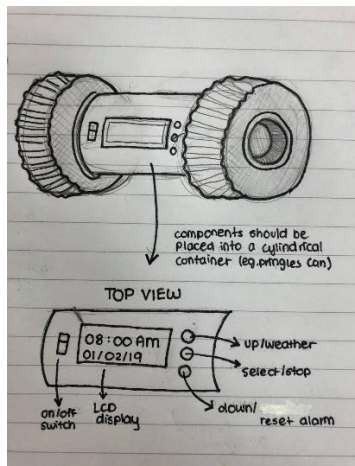 components should be
placed into a cylindrical
container (eg. pringles can)
TOP VIEW
08:00 Am
01/02/19
up/weather
select/stop
down/
reset alarm
on/off
switch
LCD
display